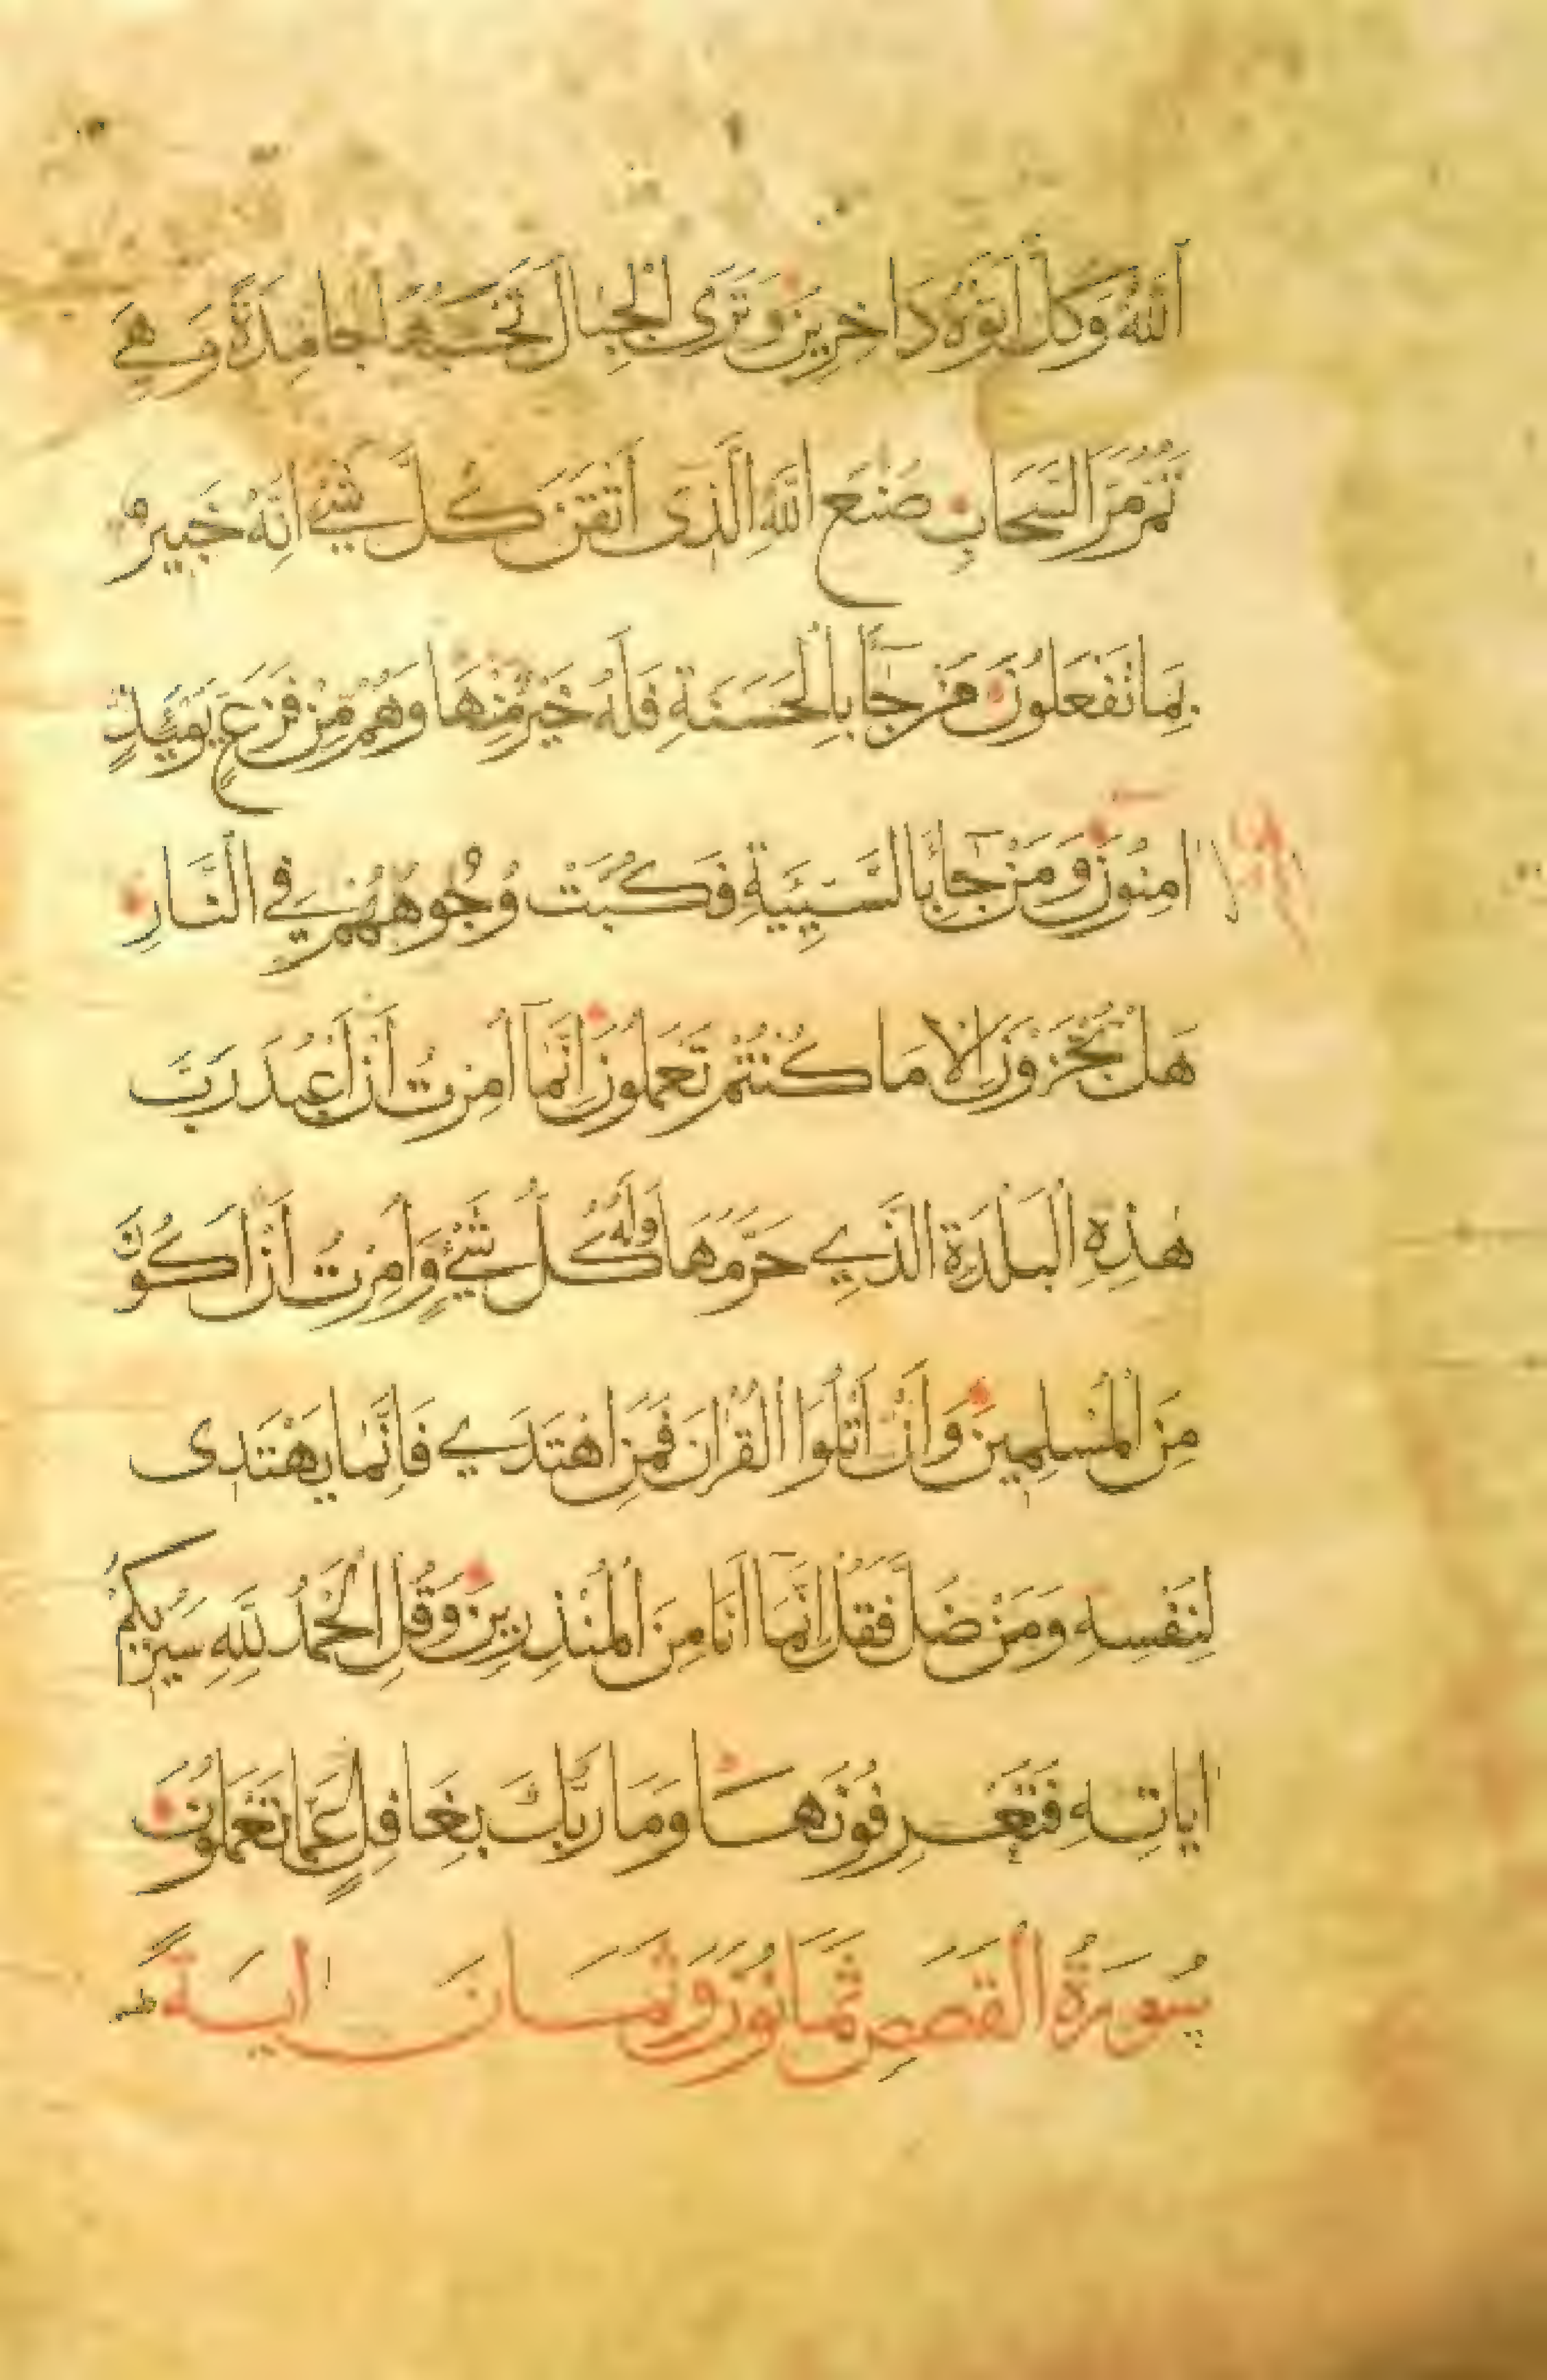 اَللّٰهُ وَكُلٌّ اَتَوْهُ دَاخِرِينَ وَتَرَى الْجِبَالَ تَحْسَبُهَا جَامِدَةً وَهِيَ
تَمُرُّ مَرَّ السَّحَابِ صُنْعَ اللّٰهِ الَّذِى اَتْقَنَ كُلَّ شَيْءٍ اِنَّهُ خَبِيرٌ
بِمَا تَفْعَلُونَ مَنْ جَآءَ بِالْحَسَنَةِ فَلَهُ خَيْرٌ مِنْهَا وَهُمْ مِنْ فَزَعٍ يَوْمَئِذٍ
اٰمِنُونَ وَمَنْ جَآءَ بِالسَّيِّئَةِ فَكُبَّتْ وُجُوهُهُمْ فِي النَّارِ
هَلْ تُجْزَوْنَ اِلَّا مَا كُنْتُمْ تَعْمَلُونَ اِنَّمَآ اُمِرْتُ اَنْ اَعْبُدَ رَبَّ
هٰذِهِ الْبَلْدَةِ الَّذِي حَرَّمَهَا وَلَهُ كُلُّ شَيْءٍ وَاُمِرْتُ اَنْ اَكُونَ
مِنَ الْمُسْلِمِينَ وَاَنْ اَتْلُوَا الْقُرْاٰنَ فَمَنِ اهْتَدَي فَاِنَّمَا يَهْتَدِى
لِنَفْسِهِ وَمَنْ ضَلَّ فَقُلْ اِنَّمَآ اَنَا مِنَ الْمُنْذِرِينَ وَقُلِ الْحَمْدُ لِلّٰهِ سَيُرِيكُمْ
اٰيَاتِهِ فَتَعْرِفُونَهَا وَمَا رَبُّكَ بِغَافِلٍ عَمَّا تَعْمَلُونَ
سُورَةُ الْقَصَصِ ثَمَانُونَ وَثَمَانَ اٰيَةً